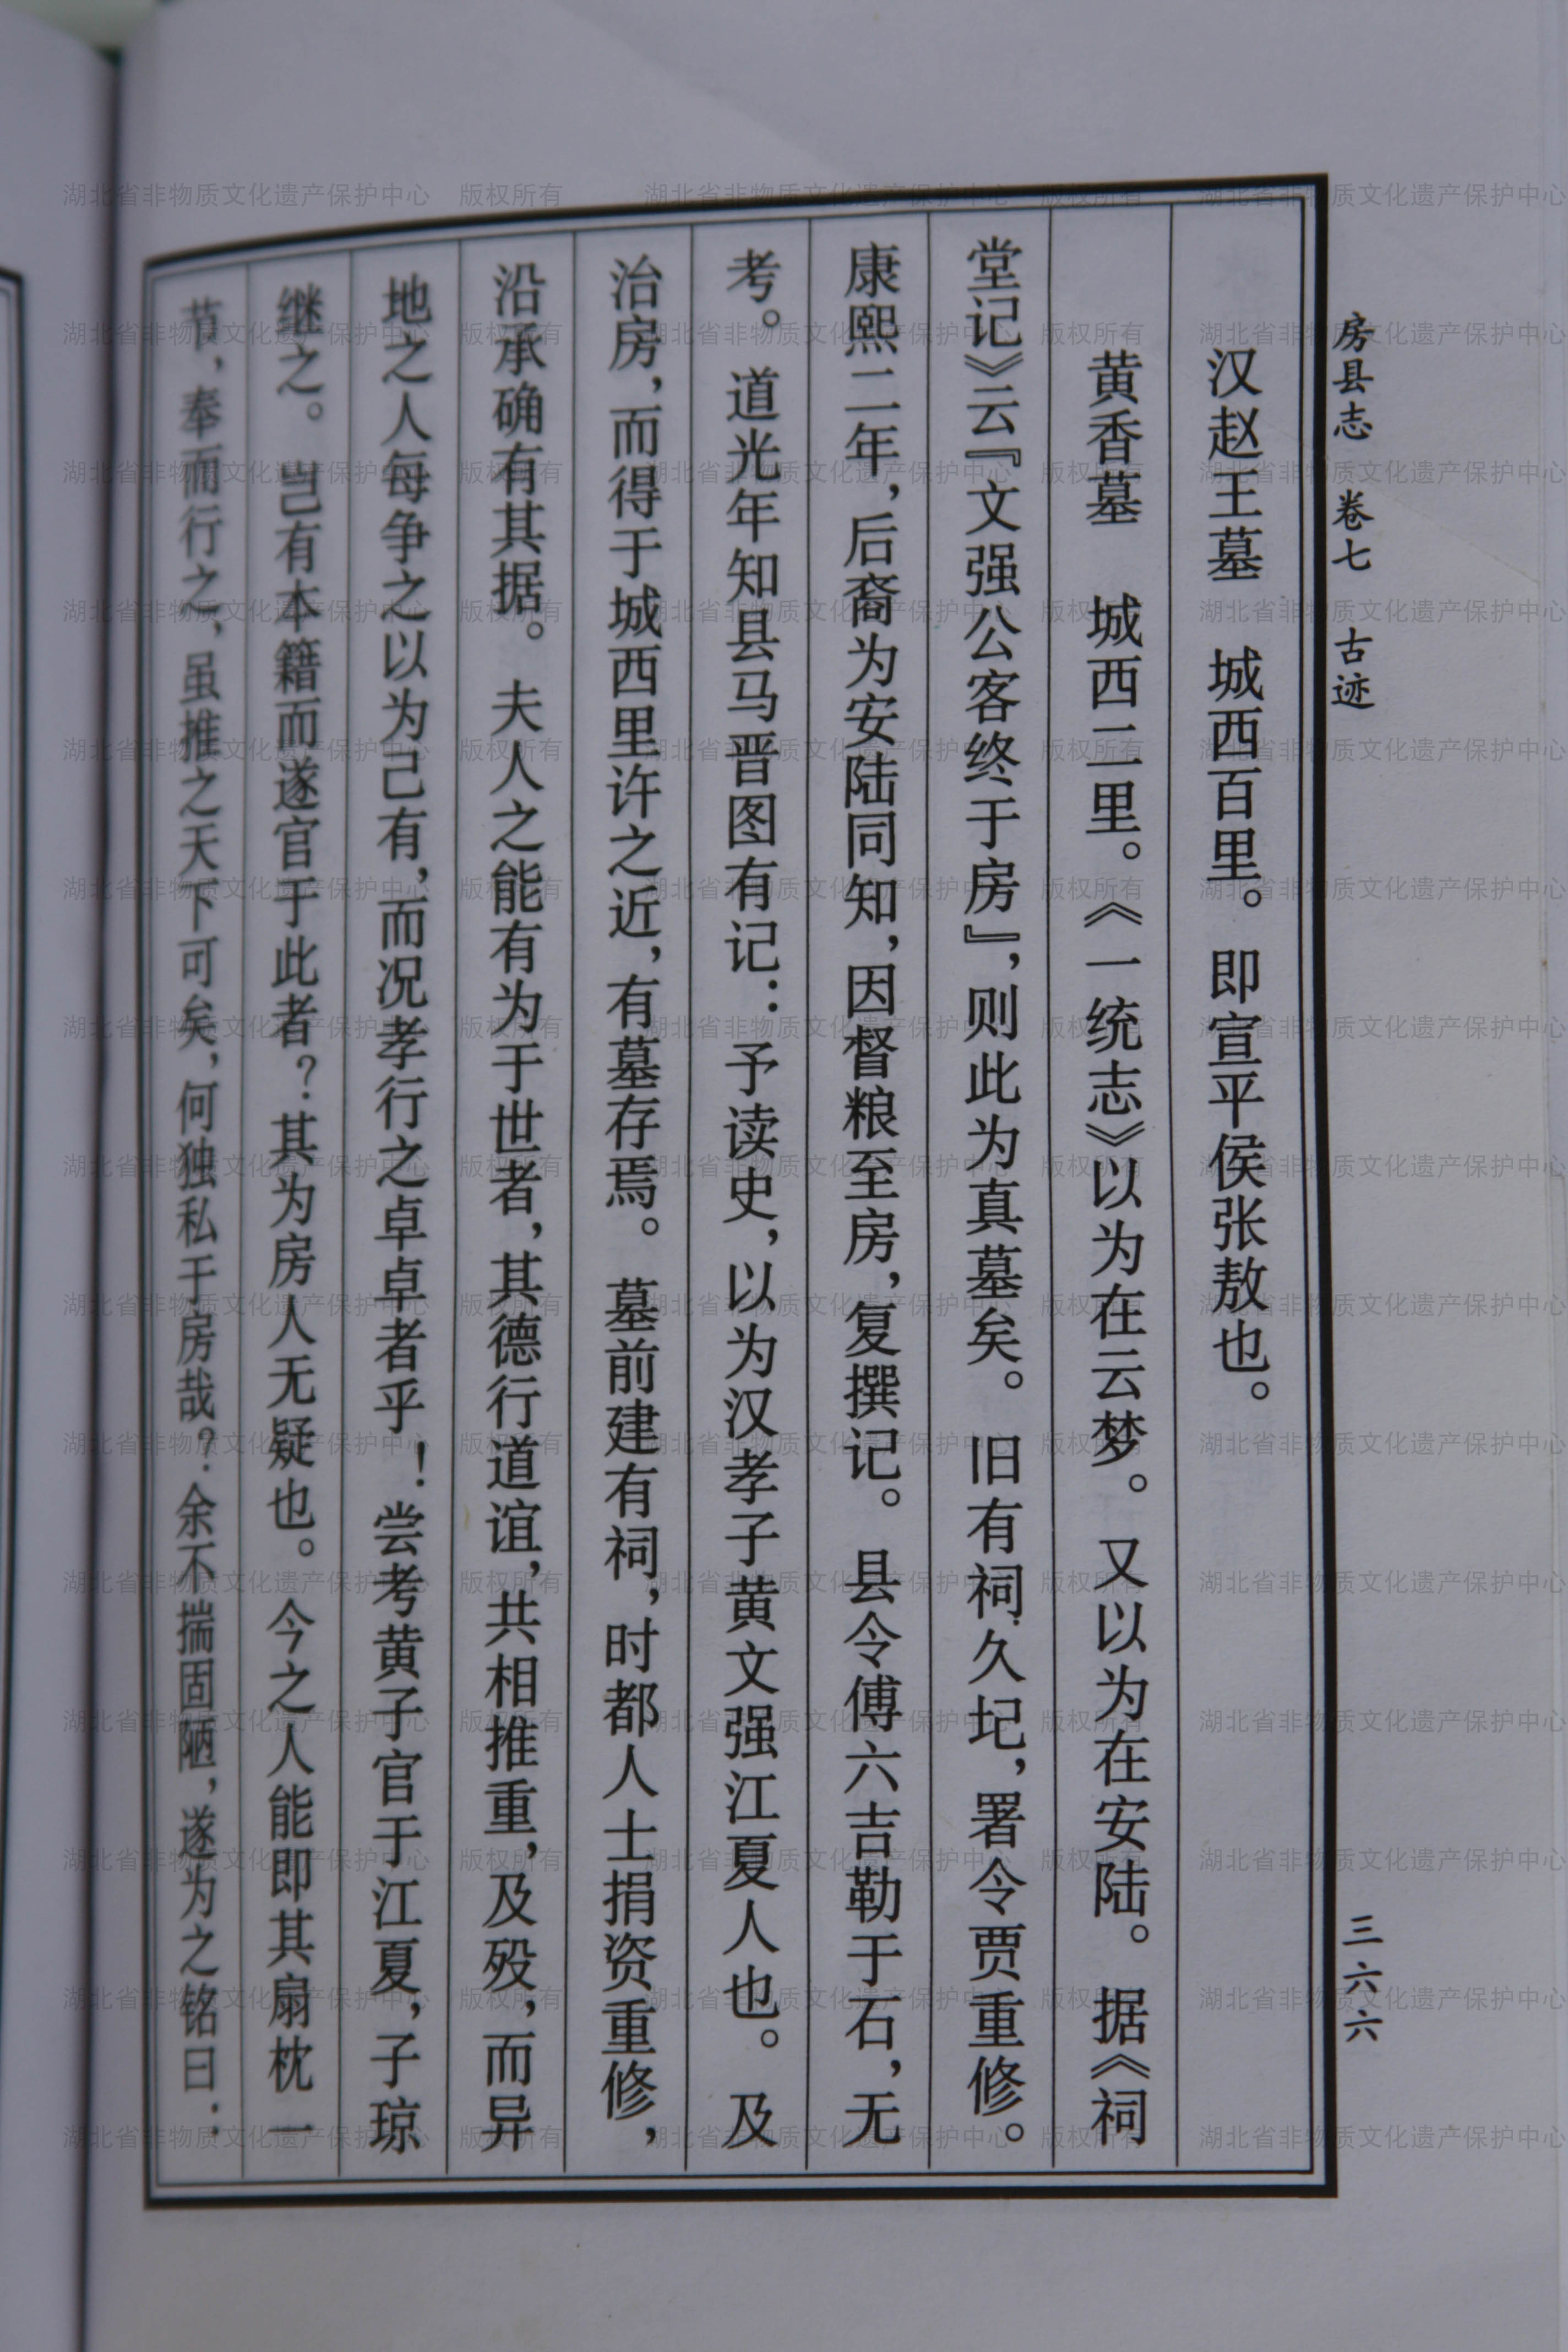 房县志 卷七 古迹 三六六
汉赵王墓 城西百里。即宣平侯张敖也。
黄香墓 城西二里。《一统志》以为在云梦。又以为在安陆。据《祠
堂记》云『文强公客终于房』，则此为真墓矣。旧有祠久圮，署令贾重修。
康熙二年，后裔为安陆同知，因督粮至房，复撰记。县令傅六吉勒于石，无
考。道光年知县马晋图有记：予读史，以为汉孝子黄文强江夏人也。及
治房，而得于城西里许之近，有墓存焉。墓前建有祠，时都人士捐资重修，
沿承确有其据。夫人之能有为于世者，其德行道谊，共相推重，及殁，而异
地之人每争之以为己有，而况孝行之卓卓者乎！尝考黄子官于江夏，子琼
继之。岂有本籍而遂官于此者？其为房人无疑也。今之人能即其扇枕一
节，奉而行之，虽推之天下可矣，何独私于房哉？余不揣固陋，遂为之铭曰：
湖北省非物质文化遗产保护中心 版权所有